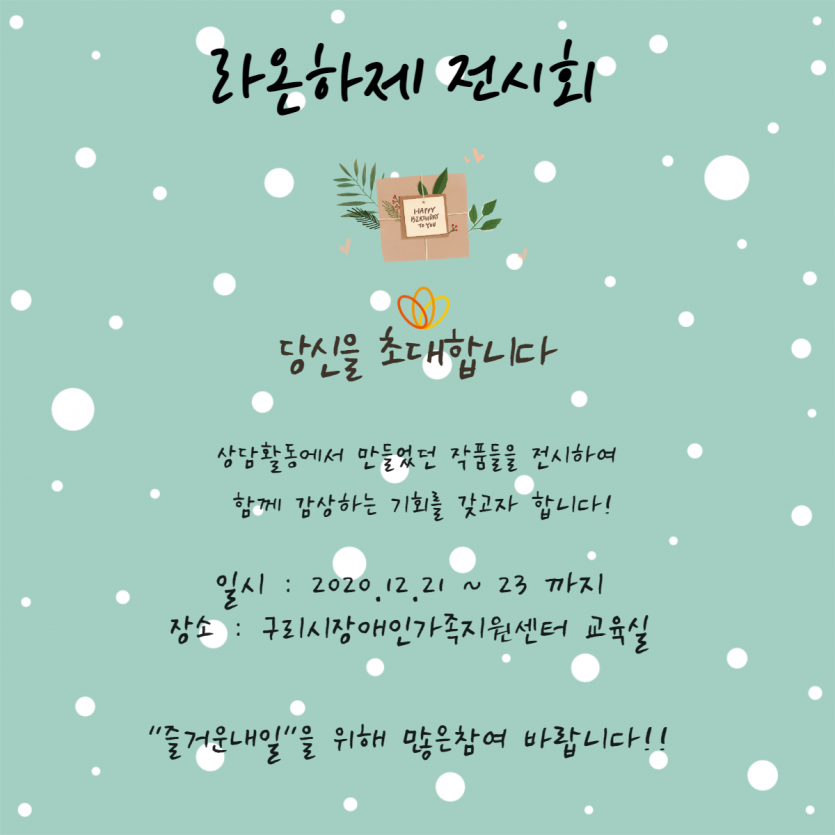 라온하제 전시회
HAPPY
BIRTHDAY
TO YOU
당신을 초대합니다
상담활동에서 만들었던 작품들을 전시하여
함께 감상하는 기회를 갖고자 합니다!
일시 : 2020.12.21 ~ 23 까지
장소 : 구리시장애인가족지원센터 교육실
"즐거운내일"을 위해 많은참여 바랍니다!!